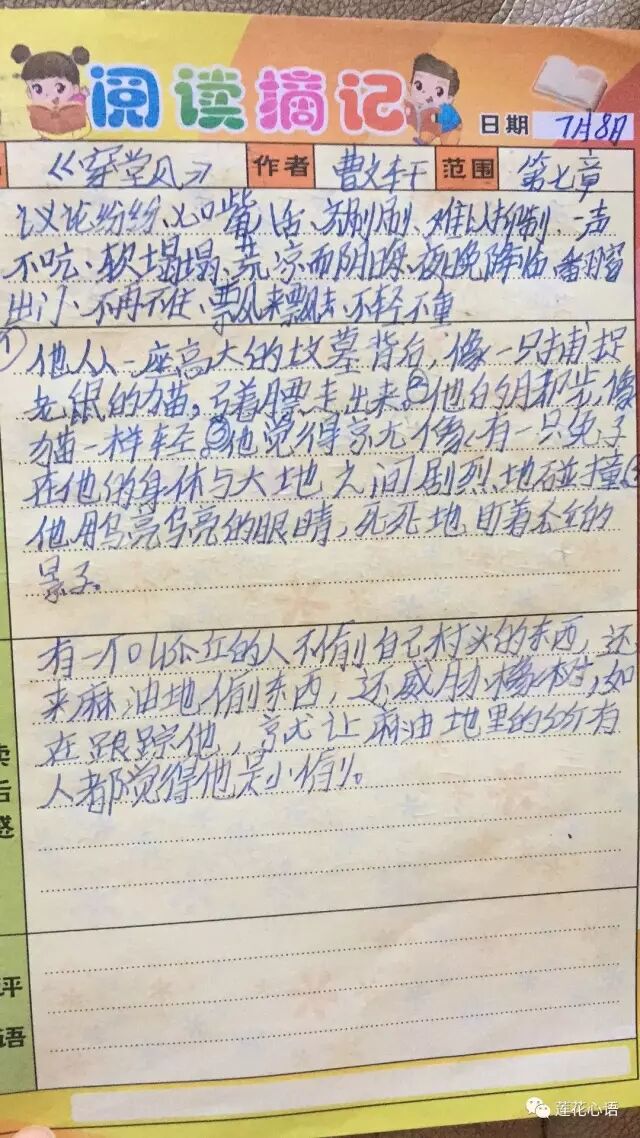 阅读摘记
日期 7月8日
《穿堂风》 作者 曹文轩 范围 第七章
议论纷纷、八嘴八舌、齐刷刷、难以抑制、一声
不吭、软塌塌、荒凉而阴晦、夜晚降临
出门、不再不住、飘来飘去、不轻不重
①他从一座高大的坟墓背后,像一只捕捉
老鼠的猫,弯着腰走出来。②他的脚步,像
猫一样轻。③他觉得就像有一只兔子
在他的身体与大地之间剧烈地碰撞
他用乌亮乌亮的眼睛,死死地盯着
景子。
有一个叫 的人不偷自己村头的东西,还
来麻油地偷东西,还威胁橡树,如
在跟踪他,就让麻油地里的所有
人都觉得他是小偷。
读后感
评语
莲花心语